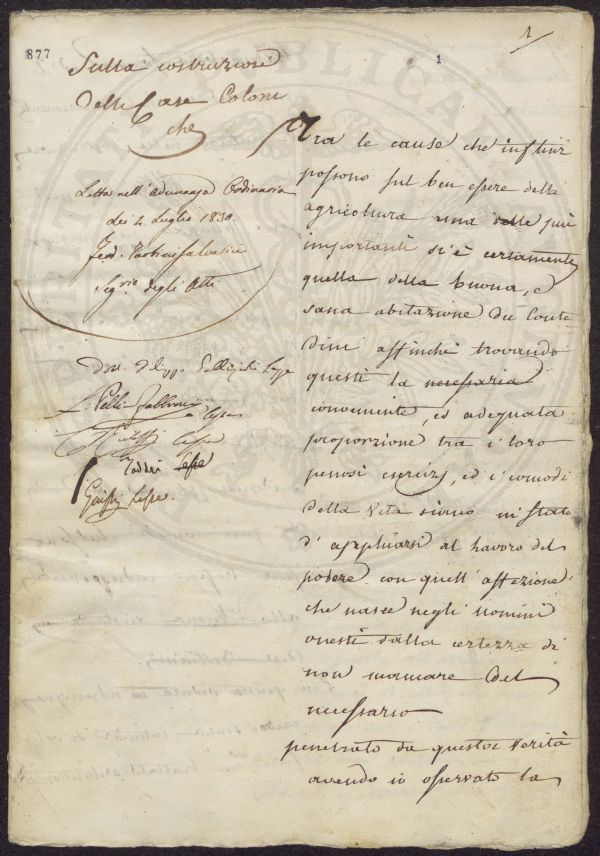 877
1
1
Sulla costruzione
delle Case Coloni
che
Letta nell'Adunanza Ordinaria
dei 4 Luglio 1830
Segrio degli Atti
Lesse
Taddei Lesse
Lesse.
Tra le cause che influir
possono sul ben essere della
agricoltura una delle più
importanti si è certamente
quella della buona, e
sana abitazione dei Conta-
dini affinchè trovando
questi la necessaria
conveniente, ed adequata
proporzione tra i loro
penosi esercizj, ed i comodi
della vita sieno in stato
d'applicarsi al lavoro del
podere con quell'affezione
che nasce negli uomini
onesti dalla certezza di
non mancare del
necessario
penetrato da questa verità
avendo io osservato la